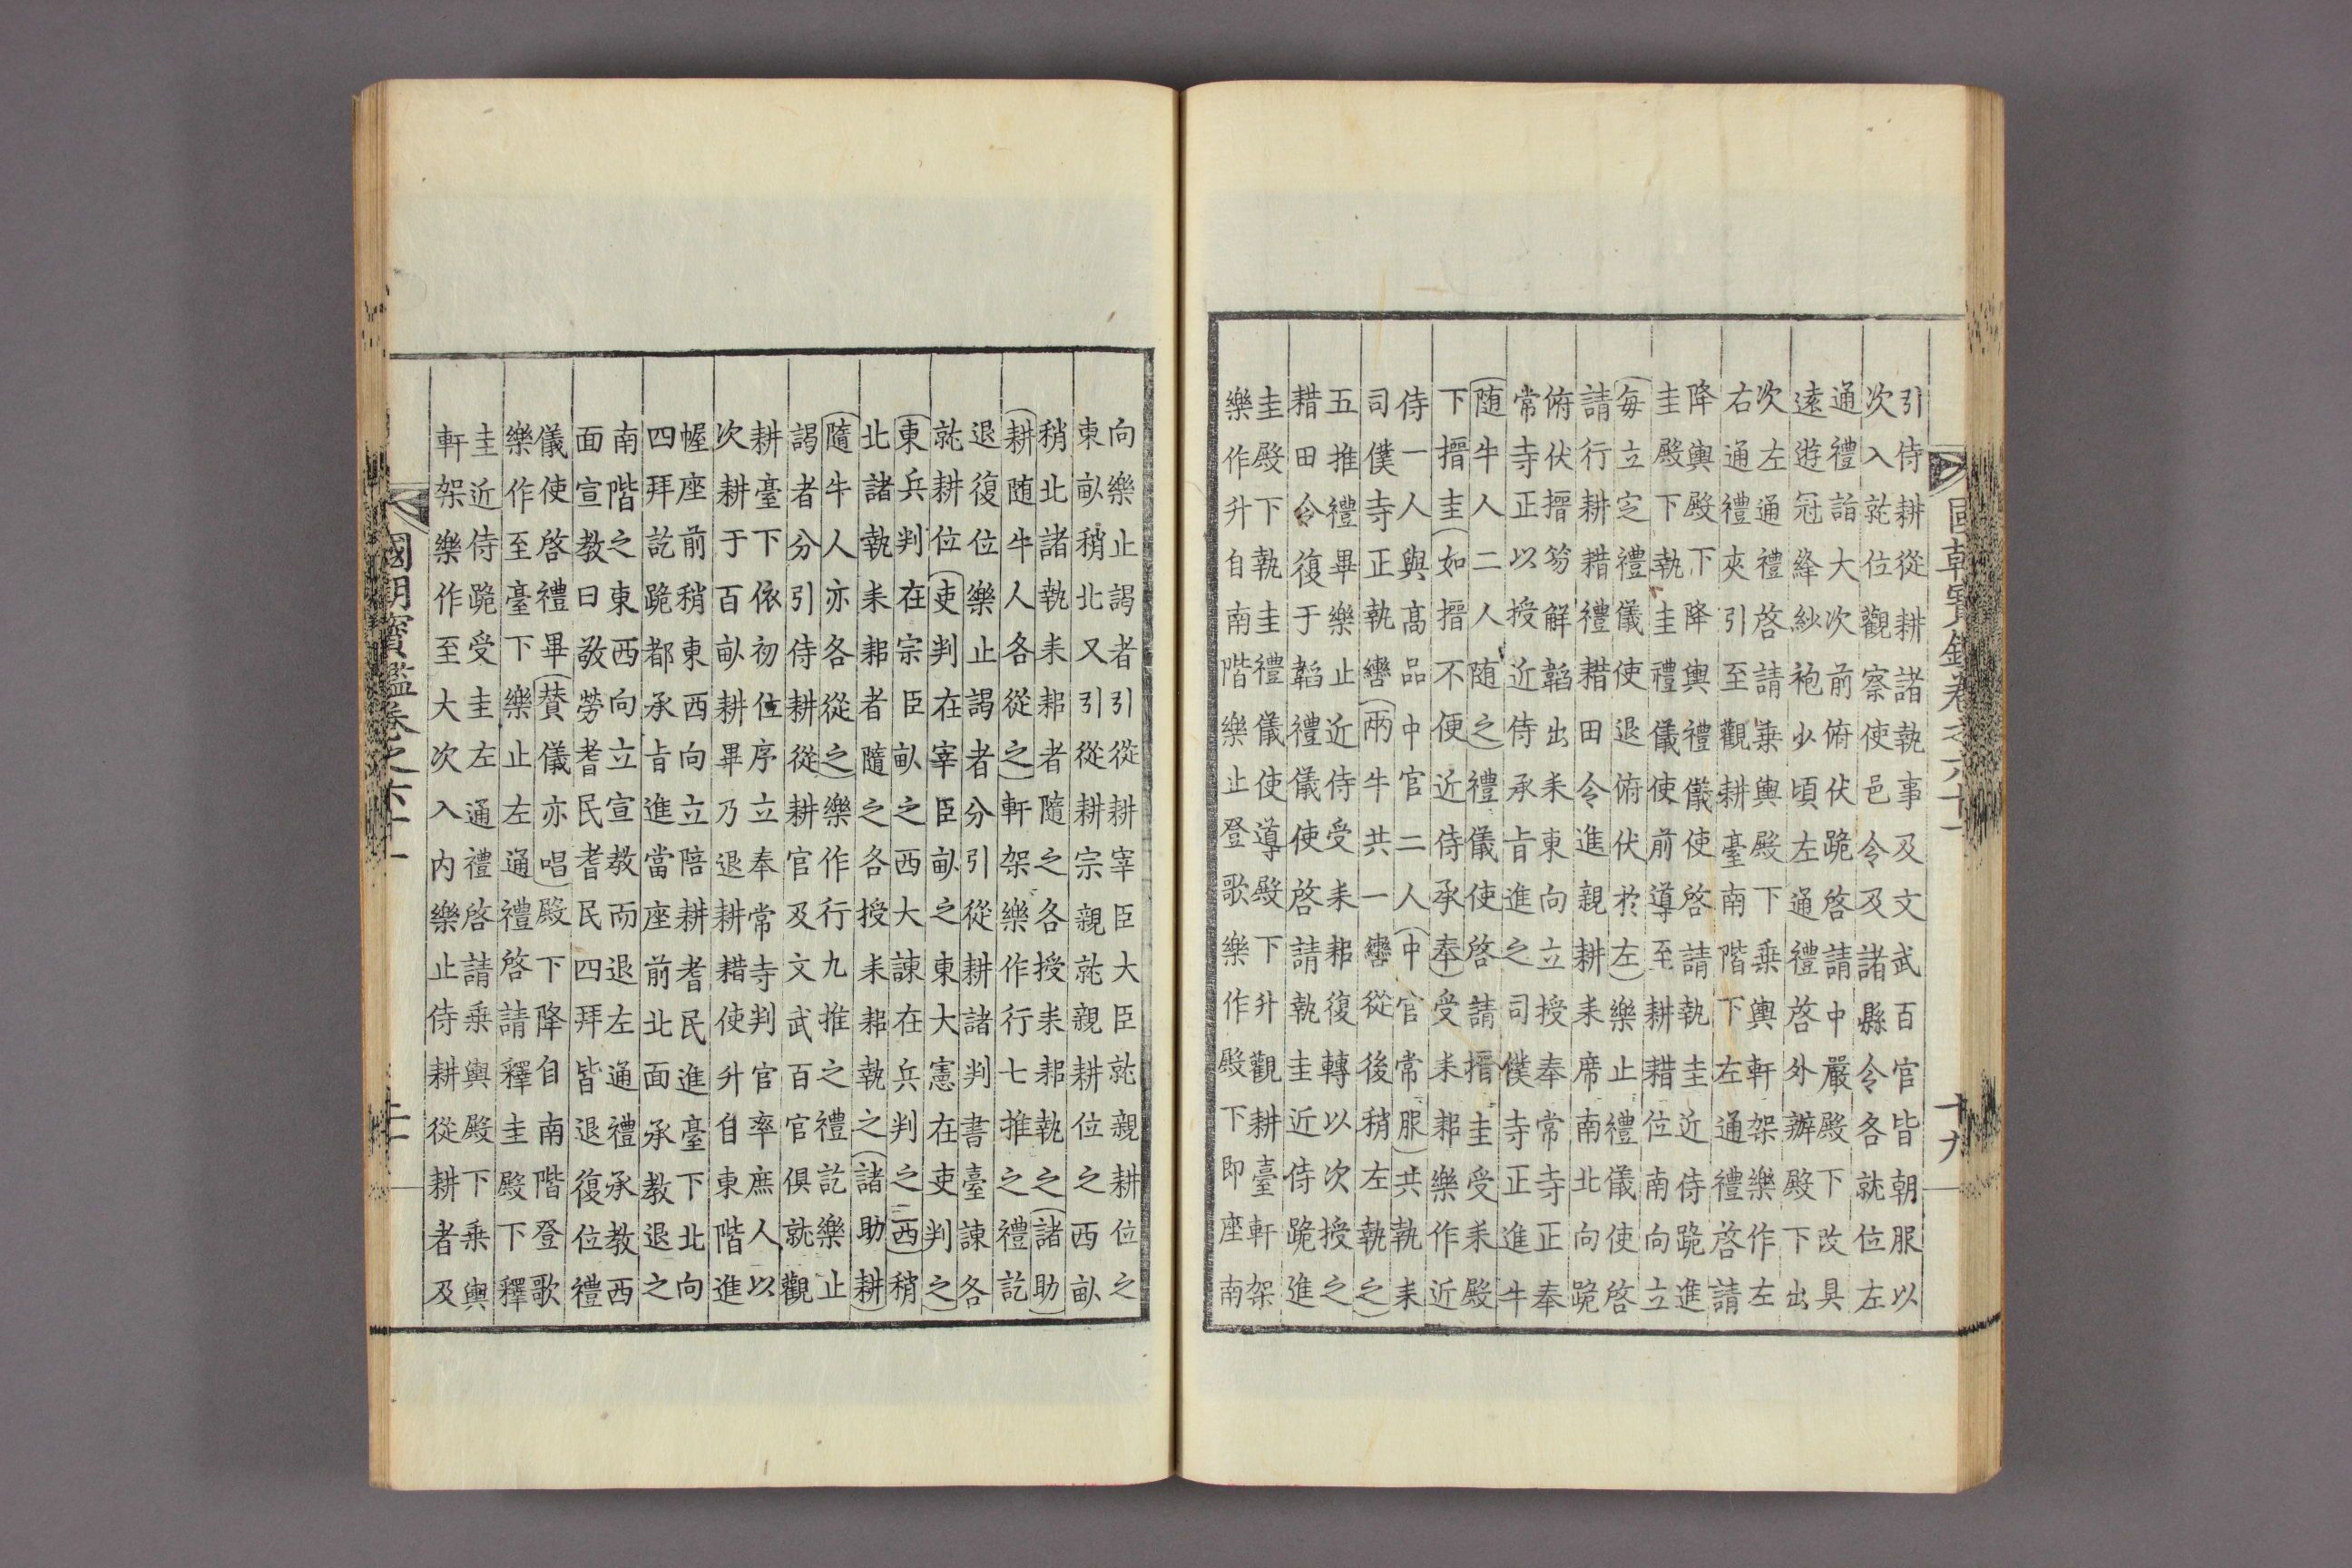 國朝寶鑑卷之六十一
十九
引侍耕從耕諸執事及文武百官皆朝服以
次入就位觀察使邑令及諸縣令各就位左
通禮詣大次前俯伏跪啓請中嚴殿下改具
遠遊冠絳紗袍少頃左通禮啓外辦殿下出
次左通禮啓請乗輿殿下乗輿軒架樂作左
右通禮夾引至觀耕臺南階下左通禮啓請
降輿殿下降輿禮儀使啓請執圭近侍跪進
圭殿下執圭禮儀使前導至耕耤位南向立
(每立定禮儀使退俯伏於左)樂止禮儀使啓
請行耕耤禮耤田令進親耕耒席南北向跪
俯伏搢笏解韜出耒東向立授奉常寺正奉
常寺正以授近侍承旨進之司僕寺正進牛
(随牛人二人随之)禮儀使啓請搢圭受耒殿
下搢圭(如搢不便近侍承奉)受耒耟樂作近
侍一人與高品中官二人(中官常服)共執耒
司僕寺正執轡(兩牛共一轡從後稍左執之)
五推禮畢樂止近侍受耒耟復轉以次授之
耤田令復于韜禮儀使啓請執圭近侍跪進
圭殿下執圭禮儀使導殿下升觀耕臺軒架
樂作升自南階樂止登歌樂作殿下即座南
向樂止謁者引從耕宰臣大臣就親耕位之
東畝稍北又引從耕宗親就親耕位之西畝
稍北諸執耒耟者隨之各授耒耟執之(諸助
耕随牛人各從之)軒架樂作行七推之禮訖
退復位樂止謁者分引從耕諸判書臺諫各
就耕位(吏判在宰臣畝之東大憲在吏判之)
(東兵判在宗臣畝之西大諫在兵判之西)稍
北諸執耒耟者隨之各授耒耟執之(諸助耕)
(隨牛人亦各從之)樂作行九推之禮訖樂止
謁者分引侍耕從耕官及文武百官俱就觀
耕臺下依初位序立奉常寺判官率庶人以
次耕于百畝耕畢乃退耕耤使升自東階進
幄座前稍東西向立陪耕耆民進臺下北向
四拜訖跪都承旨進當座前北面承教退之
南階之東西向立宣教而退左通禮承教西
面宣教曰敬勞耆民耆民四拜皆退復位禮
儀使啓禮畢(賛儀亦唱)殿下降自南階登歌
樂作至臺下樂止左通禮啓請釋圭殿下釋
圭近侍跪受圭左通禮啓請乗輿殿下乗輿
軒架樂作至大次入内樂止侍耕從耕者及
國朝寶鑑卷之六十一